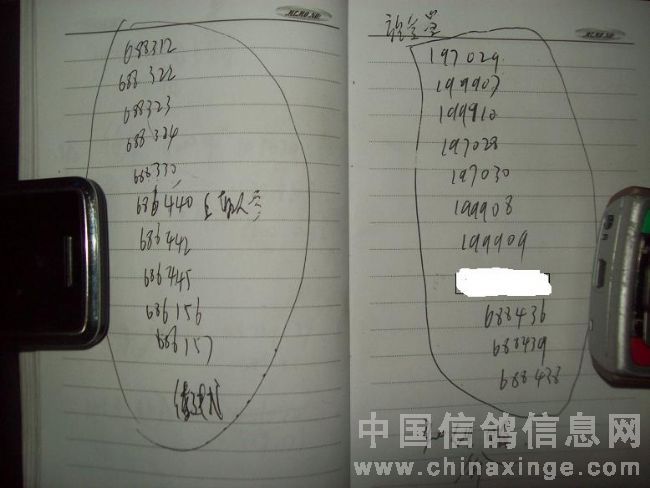 688312
688322
688323
688324
688330
686440
686442
686445
686156
686157
197029
199907
199910
197028
197030
199908
199909
688436
688439
688438
中国信鸽信息网
www.chinaxinge.com